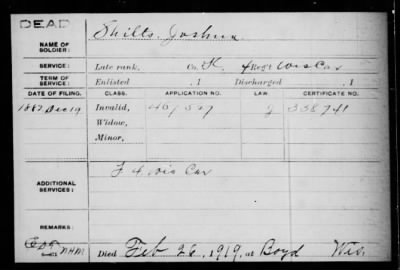 DEAD
NAME OF SOLDIER: Shills, Joshua
SERVICE: Late rank, Co. K, 4 Reg't Wis Cav
TERM OF SERVICE: Enlisted , 1 Discharged , 1
DATE OF FILING. CLASS. APPLICATION NO. LAW. CERTIFICATE NO.
1882 Dec 19 Invalid, 467 557 338 741
Widow,
Minor,
ADDITIONAL SERVICES: F 4 Wis Cav
REMARKS:
NHM Died Feb 26, 1919, at Boyd Wis.